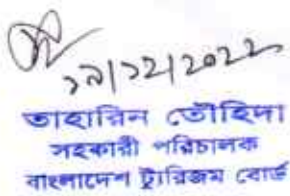 ১৯/১২/২০২২
তাহারিন তৌহিদা
সহকারী পরিচালক
বাংলাদেশ ট্যুরিজম বোর্ড